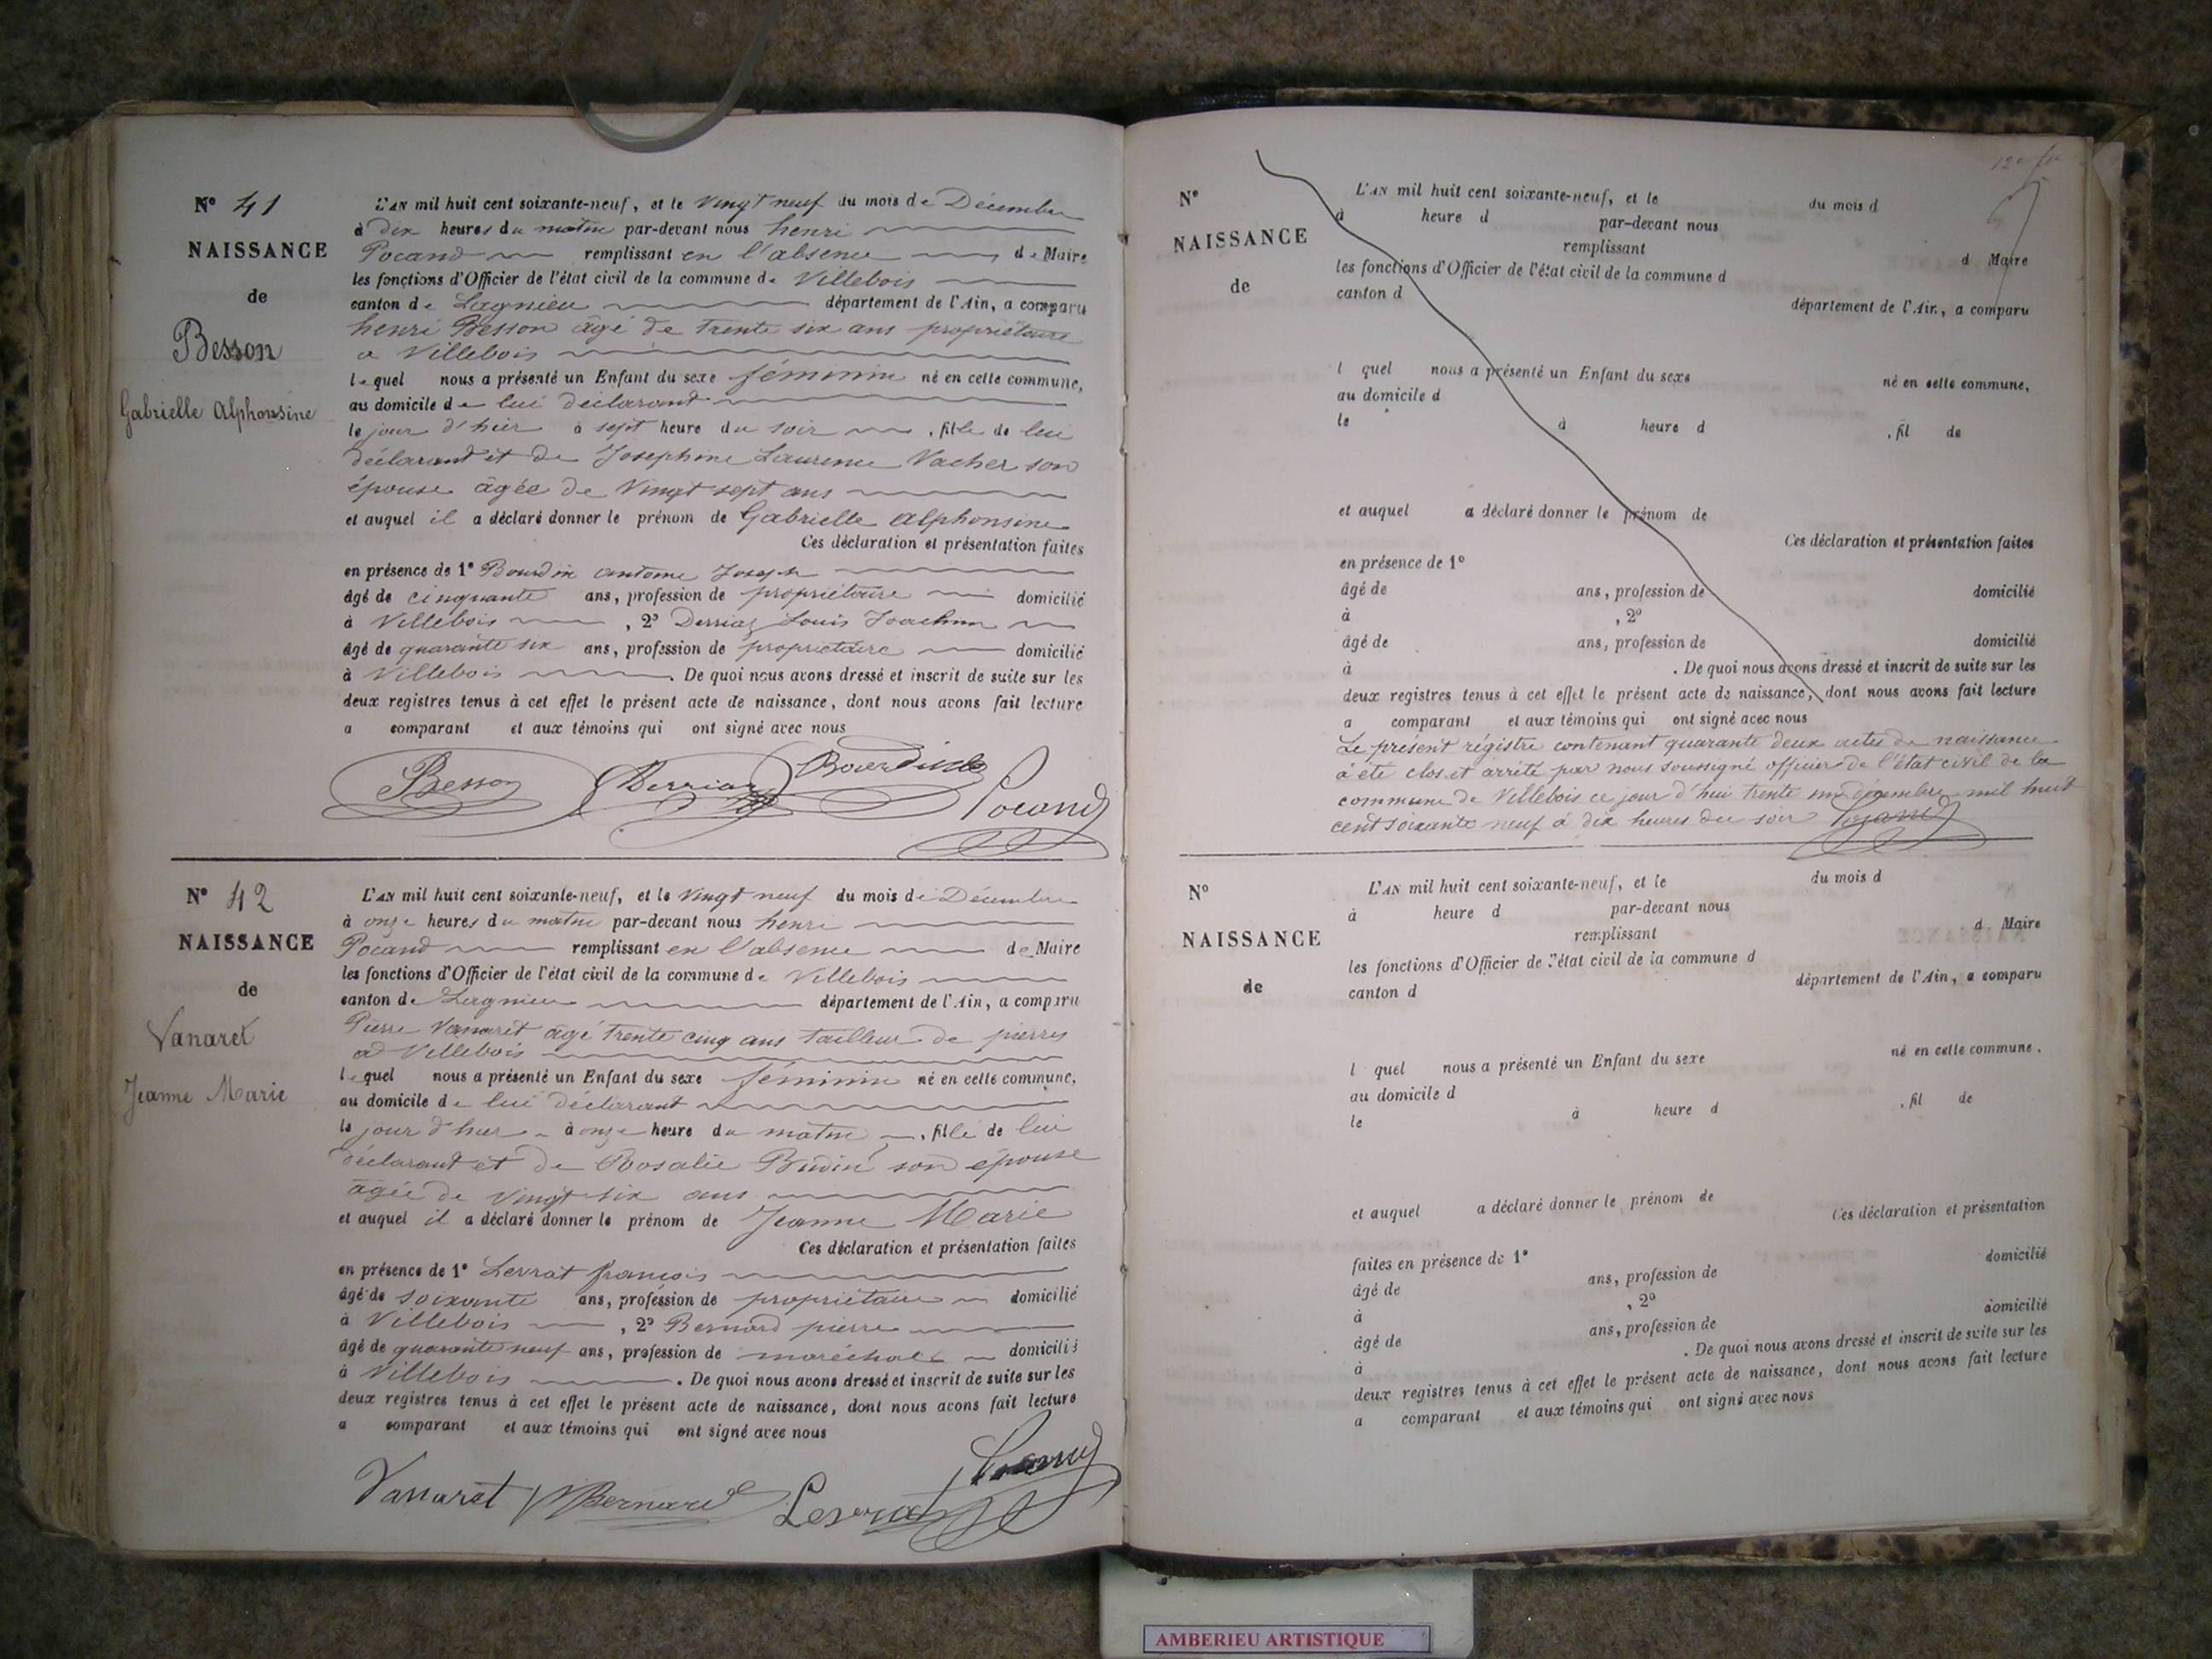 N° 41
NAISSANCE
de
Besson
Gabrielle Alphonsine
L'AN mil huit cent soixante-neuf, et le Vingt neuf du mois de Décembre
à Dix heures du matin par-devant nous henri
Pocand remplissant en l'absence de Maire
les fonctions d'Officier de l'état civil de la commune de Villebois
canton de Lagnieu département de l'Ain, a comparu
henri Besson âgé de trente six ans propriétaire
a Villebois
lequel nous a présenté un Enfant du sexe féminin né en cette commune,
au domicile de lui déclarant
le jour d'hier à sept heure du soir , fille de lui
déclarant et de Josephine Laurence Vacher son
épouse âgée de Vingt sept ans
et auquel il a déclaré donner le prénom de Gabrielle Alphonsine
Ces déclaration et présentation faites
en présence de 1° Bourdin antoine Joseph
âgé de cinquante ans, profession de propriétaire domicilié
à Villebois , 2° Derriaz Louis Joachim
âgé de quarante six ans, profession de propriétaire domicilié
à Villebois . De quoi nous avons dressé et inscrit de suite sur les
deux registres tenus à cet effet le présent acte de naissance, dont nous avons fait lecture
a comparant et aux témoins qui ont signé avec nous
Besson Derriaz Bourdin Pocand
N° 42
NAISSANCE
de
Vanaret
Jeanne Marie
L'AN mil huit cent soixante-neuf, et le Vingt neuf du mois de Décembre
à onze heures du matin par-devant nous henri
Pocand remplissant en l'absence de Maire
les fonctions d'Officier de l'état civil de la commune de Villebois
canton de Lagnieu département de l'Ain, a comparu
Pierre Vanaret âgé trente cinq ans tailleur de pierres
a Villebois
lequel nous a présenté un Enfant du sexe féminin né en cette commune,
au domicile de lui déclarant
le jour d'hier à onze heure du matin , fille de lui
déclarant et de Rosalie Budin son épouse
âgée de Vingt six ans
et auquel il a déclaré donner le prénom de Jeanne Marie
Ces déclaration et présentation faites
en présence de 1° Levrat françois
âgé de soixante ans, profession de propriétaire domicilié
à Villebois , 2° Bernard pierre
âgé de quarante neuf ans, profession de maréchal domicilié
à Villebois . De quoi nous avons dressé et inscrit de suite sur les
deux registres tenus à cet effet le présent acte de naissance, dont nous avons fait lecture
a comparant et aux témoins qui ont signé avec nous
Vanaret Bernard Levrat Pocand
N°
NAISSANCE
de
L'AN mil huit cent soixante-neuf, et le du mois d
à heure d par-devant nous
remplissant d Maire
les fonctions d'Officier de l'état civil de la commune d
canton d département de l'Ain, a comparu
l quel nous a présenté un Enfant du sexe né en cette commune,
au domicile d
le à heure d , fil de
et auquel a déclaré donner le prénom de
Ces déclaration et présentation faites
en présence de 1°
âgé de ans, profession de domicilié
à , 2°
âgé de ans, profession de domicilié
à . De quoi nous avons dressé et inscrit de suite sur les
deux registres tenus à cet effet le présent acte de naissance, dont nous avons fait lecture
a comparant et aux témoins qui ont signé avec nous
Le présent régistre contenant quarante deux actes de naissance
à été clos et arrêté par nous soussigné officier de l'état civil de la
commune de Villebois ce jour d'hui trente un décembre mil huit
cent soixante neuf à dix heures du soir Pocand
N°
NAISSANCE
de
L'AN mil huit cent soixante-neuf, et le du mois d
à heure d par-devant nous
remplissant d Maire
les fonctions d'Officier de l'état civil de la commune d
canton d département de l'Ain, a comparu
l quel nous a présenté un Enfant du sexe né en cette commune.
au domicile d
le à heure d , fil de
et auquel a déclaré donner le prénom de
Ces déclaration et présentation
faites en présence de 1°
âgé de ans, profession de domicilié
à , 2°
âgé de ans, profession de domicilié
à . De quoi nous avons dressé et inscrit de suite sur les
deux registres tenus à cet effet le présent acte de naissance, dont nous avons fait lecture
a comparant et aux témoins qui ont signé avec nous
AMBERIEU ARTISTIQUE